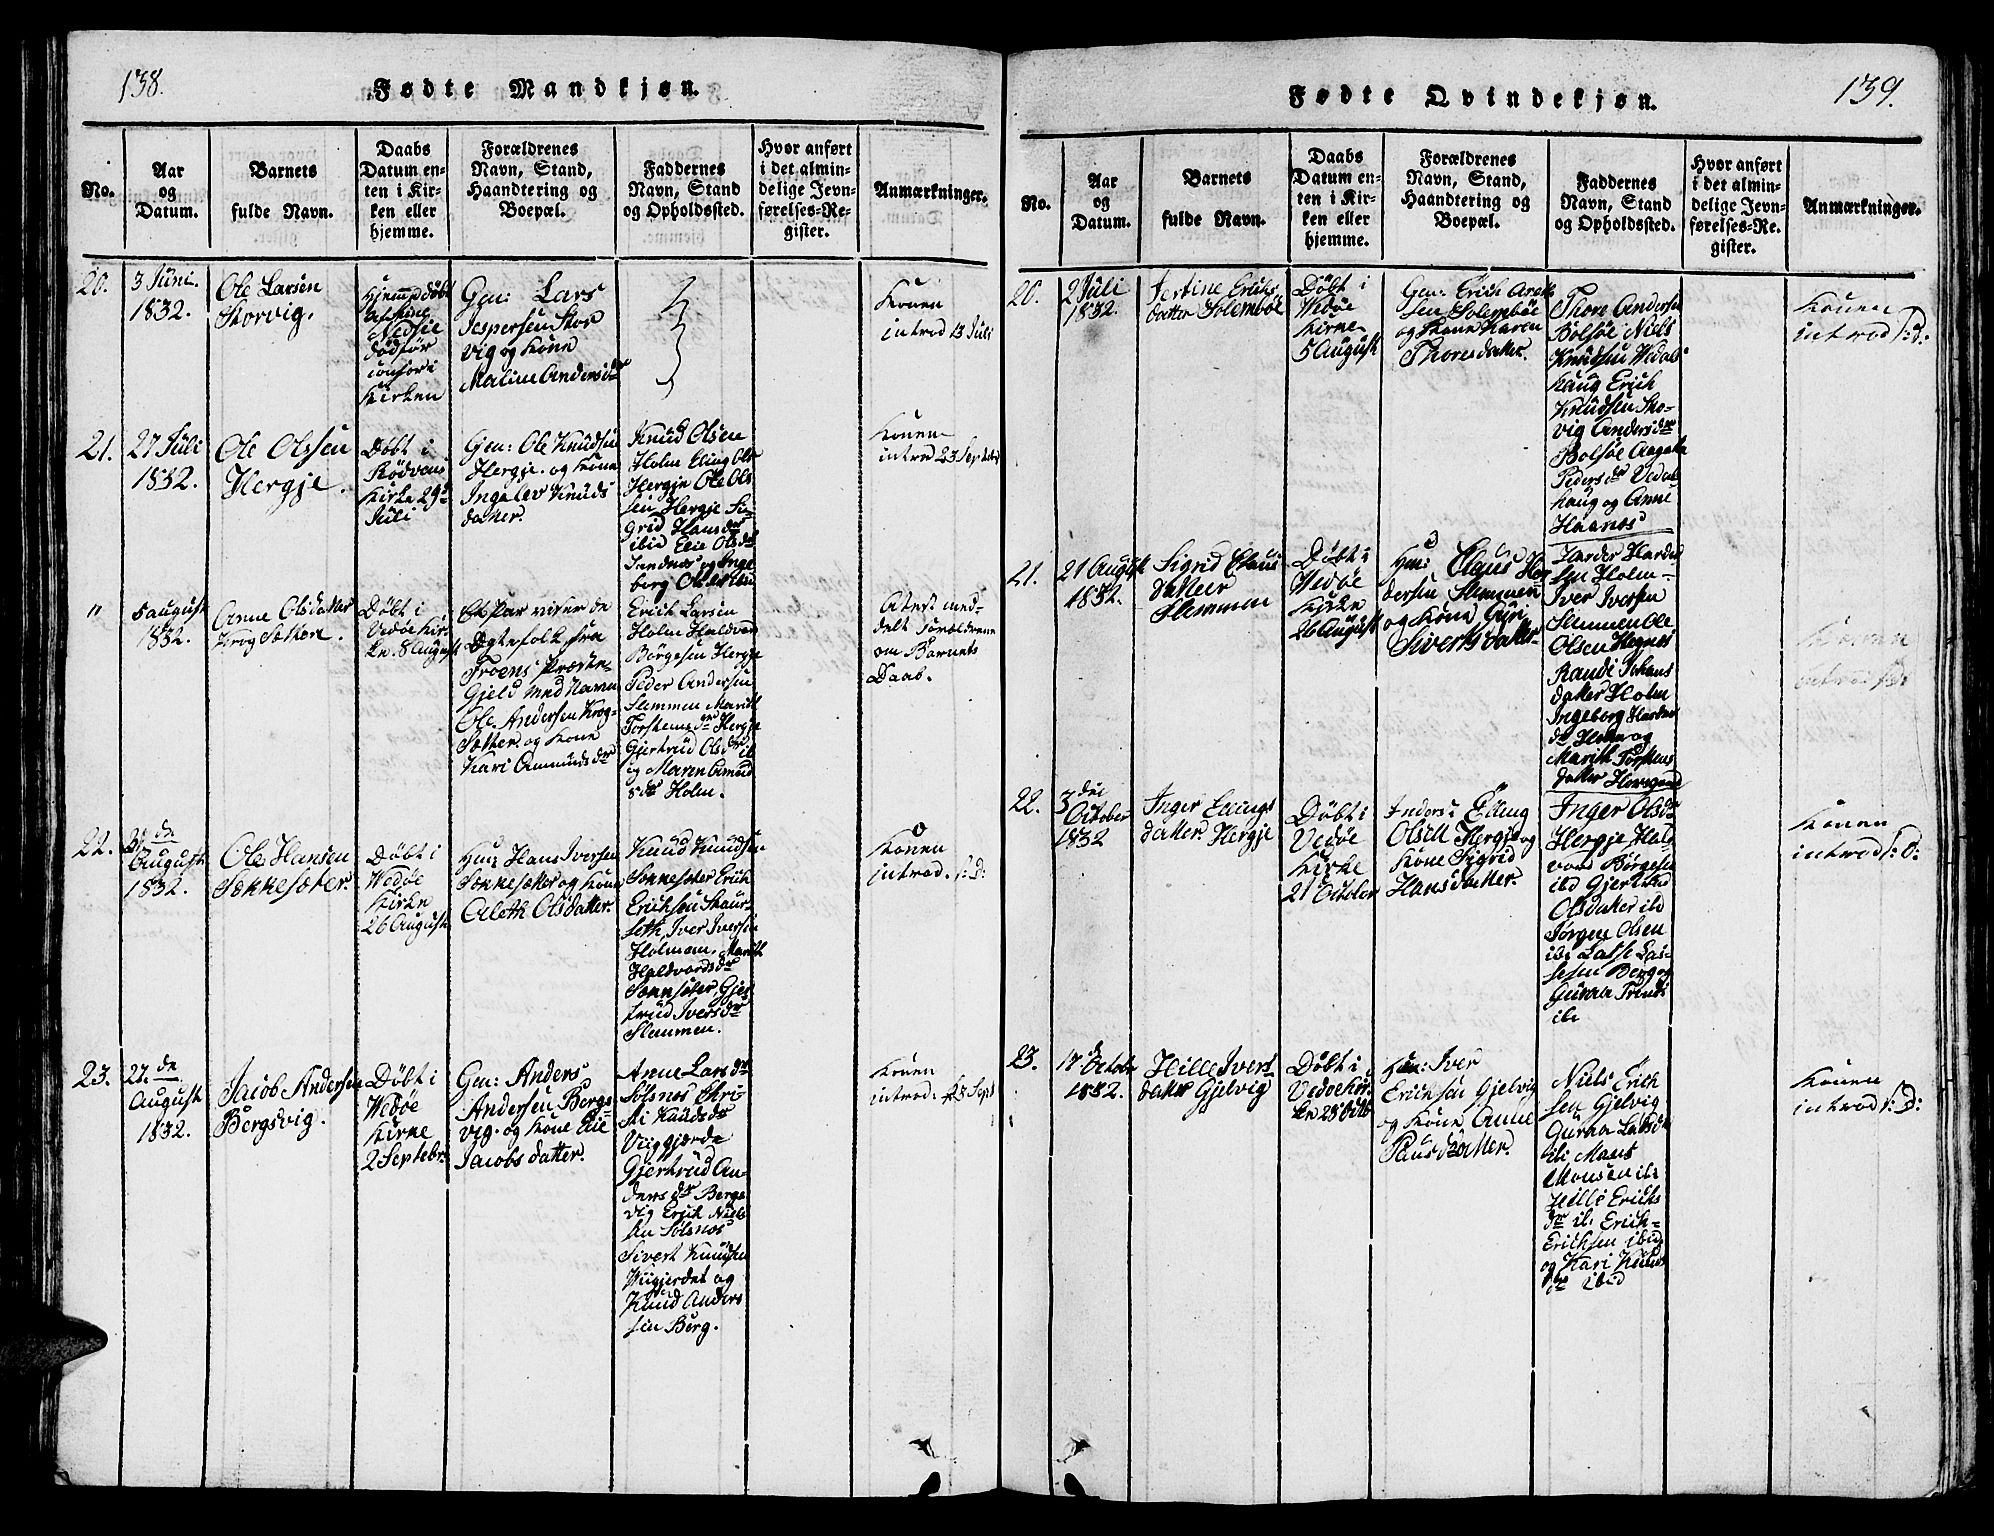 138.
Fødte Mandkjøn.
No.
Aar
og
Datum.
Barnets
fulde Navn.
Daabs
Datum en-
ten i Kir-
ken eller
hjemme.
Forældrenes
Navn, Stand,
Haandtering og
Boepæl.
Faddernes
Navn, Stand
og Opholdssted.
Hvor anført
i det almin-
delige Jevn-
førelses-Re-
gister.
Anmærkninger.
20.
3 Juni.
1832.
Ole Larsen
Storvig.
Hjemmedøbt
død før
Kirken
Gen: Lars
Jespersen Stor
vig og Kone
Maline Andersdr
Konen
introd 13 Juli
21.
27 Juli
1832.
Ole Olssen
Hergje.
Døbt i
Rødvens
Kirke 29de
Juli
Gen: Ole Knudsen
Hergje. og Kone
Ingelev Knuds
datter.
Knud Olsen
Holm Eling Ols
Hergje Ole Ols
sen Hergje Si-
grid Hansdr
ibid Elie Olsdr
Sandnæs og Inge
berg Olsdr
Konen
introd 23 Septebr
"
5 august
1832.
Anne Olsdatter
Krogsætter.
Døbt i
Vedøe Kir-
ke. 8 August
Et Par rejsende
Ægtefolk fra
Froens Præste-
Gjeld med Navn
Ole Andersen Krog-
Sætter og Kone
Kari Amundsdr
Erich Larsen
Holm Haldvord
Børgesen Hergje
Peder Andersen
Slemmen Marith
Torstensdr Hergje
Gjertrud Olsdr ib
og Maren Amund
sdr Holm.
Atest med-
delt Forældrene
om Barnets
Daab.
22.
21de
August
1832.
Ole Hansen
Søkkesæter.
Døbt i
Wedøe
Kirke
26 August
Huus Hans Iversen
Søkkesætter og Kone
Arleth Olsdatter.
Knud Knudsen
Søkkesæter Erich
Erichsen Skaur-
seth, Iver Iversen
Holmem, Marith
Haldvordsdr
Søkkesæter, Gjer-
trud Iversdr
Slemmen.
Konen
introd. :D:
23.
27.de
August
1832.
Jacob Andersen
Bergsvig.
Døbt i
Wedøe
Kirke
2 Septebr.
Gen: Anders
Andersen Bergs-
vig. og Kone Elie
Jacobs datter.
Anne Larsdr
Sølsnes Chri-
sti Knudsdr
Viiggjerde
Gjertrud An-
dersdr Bergs
vig Erich Niels
sen Sølsnes
Sivert Knudsen
Wiigjerdet og
Knud Anders
sen Berg.
Konen
introd. 23 Sept
139.
Fødte Qvindekjøn.
No.
Aar
og
Datum.
Barnets
fulde Navn.
Daabs
Datum en-
ten i Kir-
ken eller
hjemme.
Forældrenes
Navn, Stand,
Haandtering og
Boepæl.
Faddernes
Navn, Stand
og Opholdssted.
Hvor anført
i det almin-
delige Jevn-
førelses-Re-
gister.
Anmærkninger.
20.
2 Juli
1832.
Jertine Erichs
datter Solembøe
Døbt i
Vedøe
Kirke
5 August
Gen: Erich
sen Solembøe
og Kone Karen
Thoresdatter.
Thore Andersen
Bolsøe Niels
Knudsen Vedals
haug Erich
Knudsen Sto-
vig Andersdr
Bolsøe Aagathe
Pedersdr Vedals
haug og Anne
Haanæs
Konen
introd :D:
21.
21 August
1832.
Sigrid Claus
datter
Slemmen
Døbt i
Vedøe
Kirke
26 August
Huu: Claus Har
dersen Slemmen
og Kone Guri
Siverts datter.
Harder Harder
sen Holm
Iver Iversen
Slemmen Ole
Olsen Hegnes
Randi Johans
datter Holm
Ingeborg Harder
dr Holm og
Marith Torstens
datter
Konen
introd :D:
22.
3 die
October
1832
Inger Ellings
datter Hergje
Døbt i
Vedøe
Kirke
21 October
Inders: Elling
Olsen Hergje og
Kone Sigrid
Hansdatter.
Inger Olsdr
Hergje Hald
vord Børgesen
ibd Gjertrud
Olsdatter ib
Jørgen Olsen
ib: Lasse Las-
sesen Berg og
Guraa
ib:
Konen
introd :D:
23.
17 October
1832.
Hille Ivers
datter Gjelvig
Døbt i
Vedøe Kir-
ke 28 Octb
Huu: Iver
Erichsen Gjelvig
og Kone Anne
Paulsdatter.
Niels Erich
sen Gjelvig
Guraa Larsdr
ib: Mons
Monsen ib:
Hille Erichs
dr ib: Erich
Erichsen ibid
og Kari Knuds
dr ibid
Konen
introd :D: